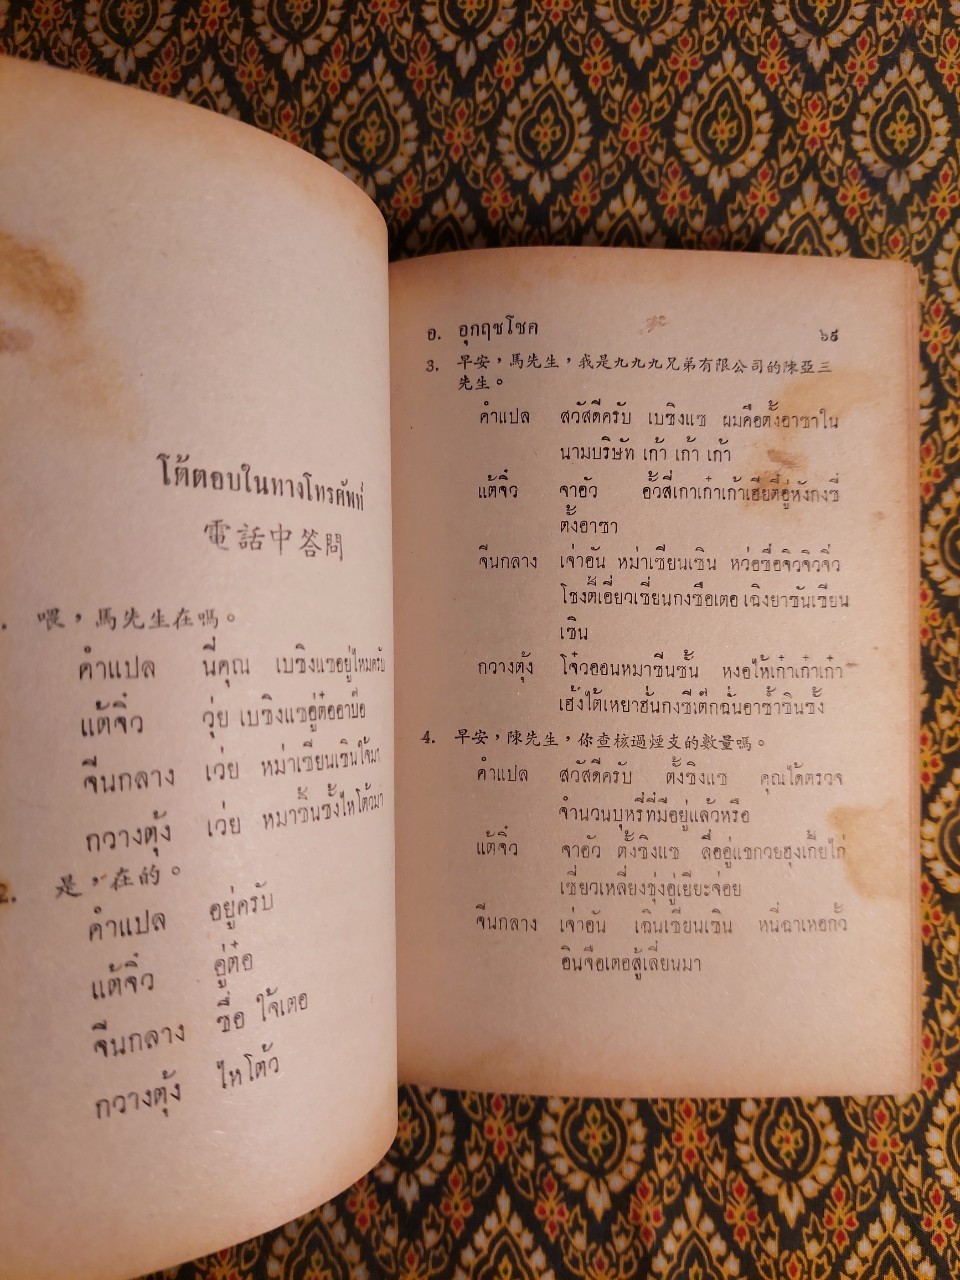 โต้ตอบในทางโทรศัพท์
電話中答問
喂，馬先生在嗎。
คำแปล นี่คุณ เบซิงแซอยู่ไหมครับ
แต้จิ๋ว วุ่ย เบซิงแซอู่ต๋ออาบ๊อ
จีนกลาง เว่ย หม่าเซียนเซินใจ้มา
กวางตุ้ง เว่ย หมาซิ้นซั้งไหโต้วมา
2. 是，在的。
คำแปล อยู่ครับ
แต้จิ๋ว อู่ต๋อ
จีนกลาง ซื่อ ใจ้เตอ
กวางตุ้ง ไหโต้ว
อ. อุกฤชโชค ๖๕
3. 早安，馬先生，我是九九九兄弟有限公司的陳亞三
先生。
คำแปล สวัสดีครับ เบซิงแซ ผมคือตั้งอาซาใน
นามบริษัท เก้า เก้า เก้า
แต้จิ๋ว จาอัว อั้วสี่เกาเก๋าเก้าเฮียตี๋อู่หังกงซี
ตั้งอาซา
จีนกลาง เจ่าอัน หม่าเซียนเซิน หว่อซื่อจิวจิวจิ่ว
โชงตี้เอี่ยวเซี่ยนกงซือเตอ เฉิงยาซันเซียน
เซิน
กวางตุ้ง โจ๋วออนหมาซีนซั้น หงอไห้เก๋าเก๋าเก๋า
เฮ้งไต้เหยาฮั่นกงซีเต๊กฉั่นอาซ้ำซินซั้ง
4. 早安，陳先生，你查核過煙支的數量嗎。
คำแปล สวัสดีครับ ตั้งซิงแซ คุณได้ตรวจ
จำนวนบุหรี่ที่มีอยู่แล้วหรือ
แต้จิ๋ว จาอัว ตั้งซิงแซ ลื่ออู่แชกวยฮุงเกี้ยไก่
เซี่ยวเหลี่ยงซุ่งอู่เยียะจ่อย
จีนกลาง เจ่าอัน เฉินเซียนเซิน หนี่ฉาเหอกั้ว
อินจือเตอสู้เลี่ยนมา